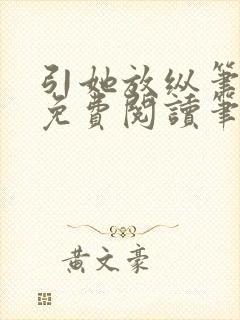 引她放纵笔
免費閱讀筆
黃文豪